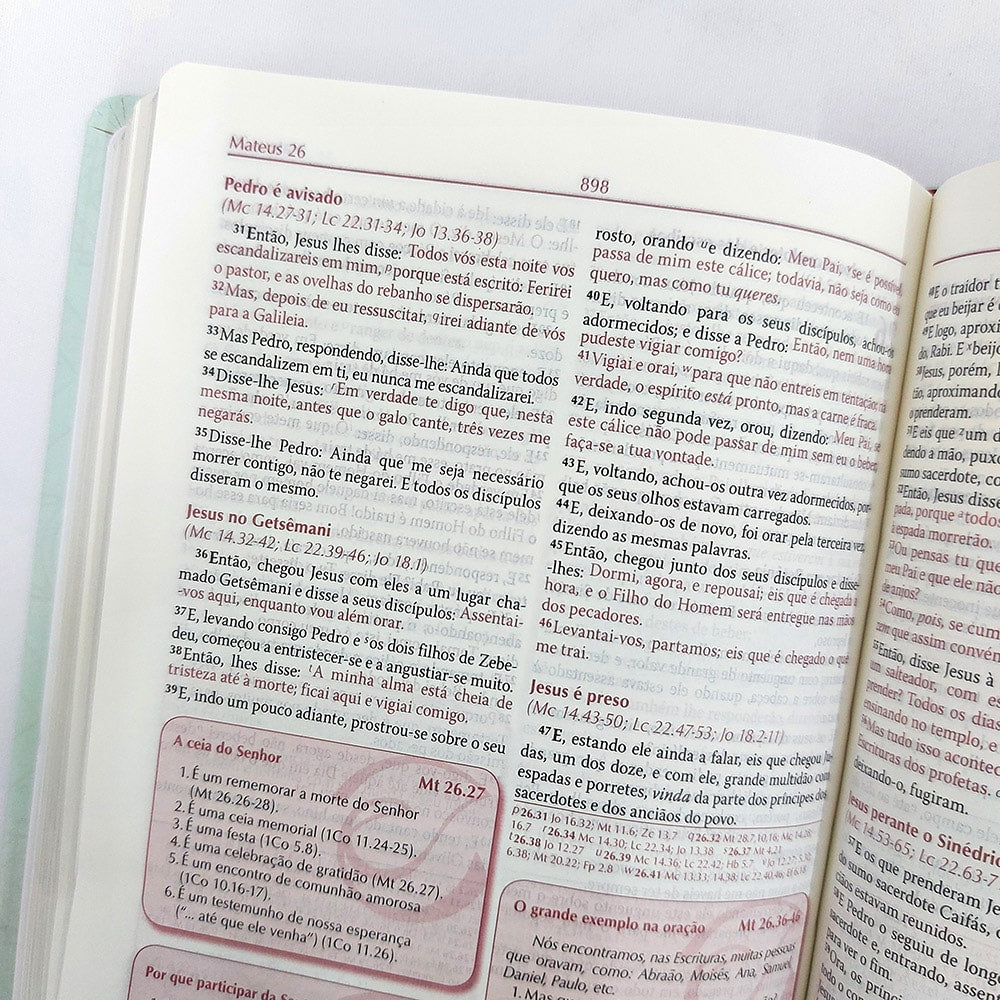 Mateus 26
898
Pedro é avisado
(Mc 14.27-31; Lc 22.31-34; Jo 13.36-38)
31Então, Jesus lhes disse: Todos vós esta noite vos
escandalizareis em mim, pporque está escrito: Ferirei
o pastor, e as ovelhas do rebanho se dispersarão.
32Mas, depois de eu ressuscitar, qirei adiante de vós
para a Galileia.
33Mas Pedro, respondendo, disse-lhe: Ainda que todos
se escandalizem em ti, eu nunca me escandalizarei.
34Disse-lhe Jesus: rEm verdade te digo que, nesta
mesma noite, antes que o galo cante, três vezes me
negarás.
35Disse-lhe Pedro: Ainda que me seja necessário
morrer contigo, não te negarei. E todos os discípulos
disseram o mesmo.
Jesus no Getsêmani
(Mc 14.32-42; Lc 22.39-46; Jo 18.1)
36Então, chegou Jesus com eles a um lugar cha-
mado Getsêmani e disse a seus discípulos: Assentai-
-vos aqui, enquanto vou além orar.
37E, levando consigo Pedro e sos dois filhos de Zebe-
deu, começou a entristecer-se e a angustiar-se muito.
38Então, lhes disse: tA minha alma está cheia de
tristeza até à morte; ficai aqui e vigiai comigo.
39E, indo um pouco adiante, prostrou-se sobre o seu
A ceia do Senhor
Mt 26.27
1. É um rememorar a morte do Senhor
(Mt 26.26-28).
2. É uma ceia memorial (1Co 11.24-25).
3. É uma festa (1Co 5.8).
4. É uma celebração de gratidão (Mt 26.27).
5. É um encontro de comunhão amorosa
(1Co 10.16-17).
6. É um testemunho de nossa esperança
("... até que ele venha") (1Co 11.26).
Por que participar da
rosto, orando ue dizendo: Meu Pai, vse é possível,
passa de mim este cálice; todavia, não seja como eu
quero, mas como tu queres.
40E, voltando para os seus discípulos, achou-os
adormecidos; e disse a Pedro: Então, nem uma hora
pudeste vigiar comigo?
41Vigiai e orai, wpara que não entreis em tentação; na
verdade, o espírito está pronto, mas a carne é fraca.
42E, indo segunda vez, orou, dizendo: Meu Pai, se
este cálice não pode passar de mim sem eu o beber,
faça-se a tua vontade.
43E, voltando, achou-os outra vez adormecidos, por-
que os seus olhos estavam carregados.
44E, deixando-os de novo, foi orar pela terceira vez,
dizendo as mesmas palavras.
45Então, chegou junto dos seus discípulos e disse-
-lhes: Dormi, agora, e repousai; eis que é chegada a
hora, e o Filho do Homem será entregue nas mãos
dos pecadores.
46Levantai-vos, partamos; eis que é chegado o que
me trai.
Jesus é preso
(Mc 14.43-50; Lc 22.47-53; Jo 18.2-11)
47E, estando ele ainda a falar, eis que chegou Ju-
das, um dos doze, e com ele, grande multidão com
espadas e porretes, vinda da parte dos príncipes dos
sacerdotes e dos anciãos do povo.
p26.31 Jo 16.32; Mt 11.6; Zc 13.7 q26.32 Mt 28.7,10,16; Mc 14.28;
16.7 r26.34 Mc 14.30; Lc 22.34; Jo 13.38 s26.37 Mt 4.21
t26.38 Jo 12.27 u26.39 Mc 14.36; Lc 22.42; Hb 5.7
6.38; Mt 20.22; Fp 2.8 w26.41 Mc 13.33; 14.38; Lc 22.40,46; Ef 6.18
O grande exemplo na oração
Mt 26.36-46
Nós encontramos, nas Escrituras, muitas pessoas
que oravam, como: Abraão, Moisés, Ana, Samuel,
Daniel, Paulo, etc.
1. Mas
E o traidor
que eu beijar é
E logo, aproxi
do, Rabi. E xbeijo
Jesus, porém,
tão, aproximando
o prenderam.
E eis que yum d
dendo a mão, puxo
sumo sacerdote, co
Então, Jesus disse
pada, porque ztodos
à espada morrerão.
Ou pensas tu que
meu Pai e que ele não
de anjos?
Como, pois, se cum
zem que assim convém
Então, disse Jesus à
um salteador, com es
prender? Todos os dias
ensinando no templo, e
Mas tudo isso acontec
Escrituras dos profetas.
deixando-o, fugiram.
Jesus perante o Sinédrio
(Mc 14.53-65; Lc 22.63-7
57E os que prenderam Je
do sumo sacerdote Caifás,
ciãos estavam reunidos.
58E Pedro o seguiu de longe
sacerdote e, entrando, assen
para ver o fim.
Ora, os príncipes
todo o conselho